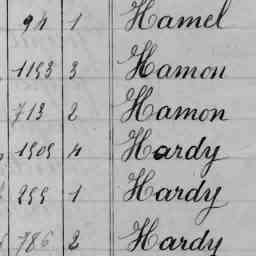 94 1 Hamel
1193 3 Hamon
713 2 Hamon
1505 4 Hardy
255 1 Hardy
786 2 Hardy